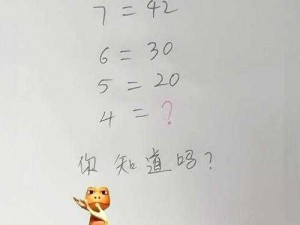 7 = 42
6 = 30
5 = 20
4 = ?
你知道吗?